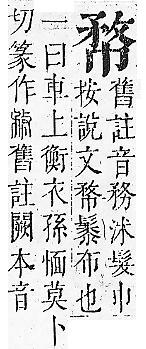 㡔
舊註音務沐髮巾
按說文㡔髹布也
一曰車上衡衣孫愐莫卜
切篆作舊註闕本音